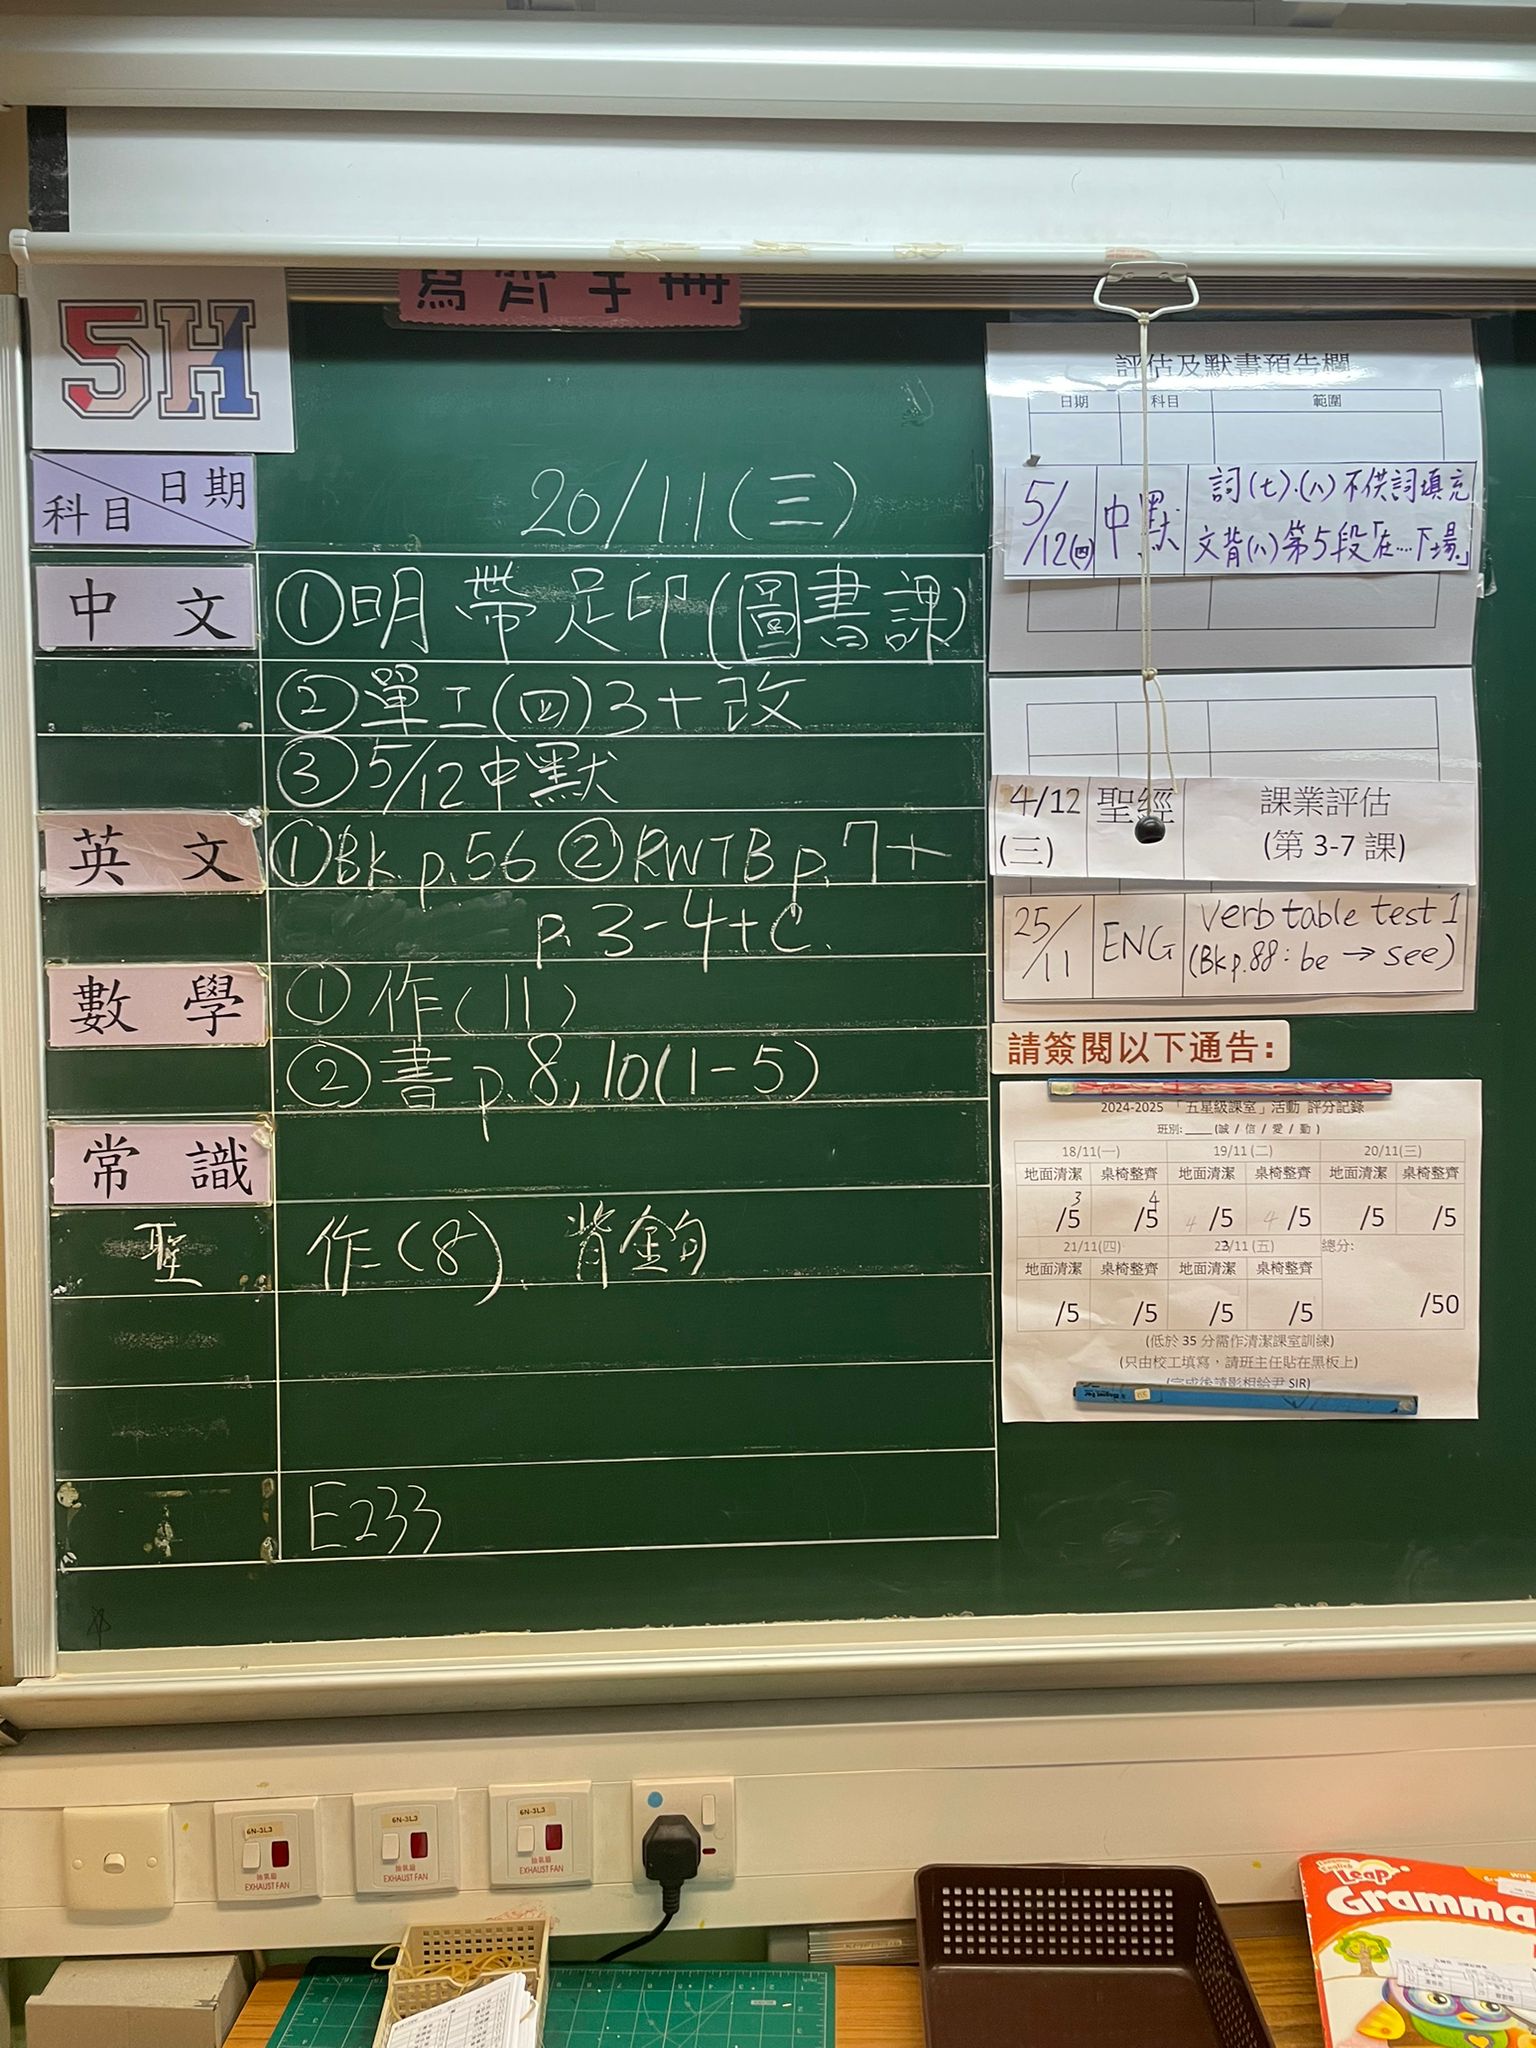 寫齊手冊
5H
日期
科目
20/11(三)
中文
①明帶足印(圖書課)
②單工(四)3+改
③5/12中默
英文
①Bk p.56 ②RWTB p.7+
p.3-4+C.
數學
①作(11)
②書p.8,10(1-5)
常識
聖
作(8)、背鈞
E233
評估及默書預告欄
日期 科目 範圍
5/12(四) 中默 詞(七).(八)不供詞填充
文背(八)第5段「在....下場。」
4/12 聖經 課業評估
(三) (第 3-7 課)
25/11 ENG Verb table test 1
(Bk p.88: be → see)
請簽閱以下通告:
2024-2025 「五星級課室」活動 評分記錄
班別:____(誠 / 信 / 愛 / 勤 )
18/11(一) 19/11(二) 20/11(三)
地面清潔 桌椅整齊 地面清潔 桌椅整齊 地面清潔 桌椅整齊
3/5 4/5 4/5 4/5 /5 /5
21/11(四) 22/11 (五) 總分:
地面清潔 桌椅整齊 地面清潔 桌椅整齊
/5 /5 /5 /5 /50
(低於 35 分需作清潔課室訓練)
(只由校工填寫，請班主任貼在黑板上)
(完成後請影相給尹 SIR)
6N-3L3
抽氣扇
EXHAUST FAN
6N-3L3
抽氣扇
EXHAUST FAN
6N-3L3
抽氣扇
EXHAUST FAN
Leap
Gramma